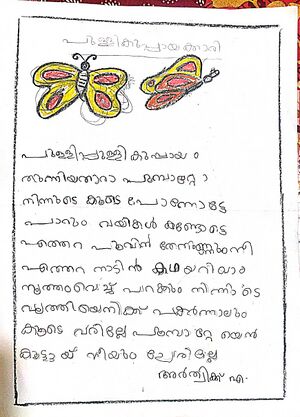 പുള്ളികുപ്പായക്കാരി
പുള്ളിപ്പുള്ളികുപ്പായം
തുന്നിയതാരാ പൂമ്പാറ്റേ
നിന്നുടെ കൂടെ പോന്നോട്ടേ
പാറും വഴികൾ കണ്ടോട്ടെ
എത്തറ പൂവിൻ തേനുണ്ണും നീ
എത്തറ നാടിൻ കഥയറിയാം
നൃത്തംവെച്ച് പറക്കും നിന്നുടെ
വൃത്തിയെനിക്ക് പകർന്നാലും
കൂടെ വരില്ലേ പൂമ്പാറ്റേ യെൻ
കൂട്ടായ് നീയും ചേരില്ലേ
അർത്വിക്ക് എ.